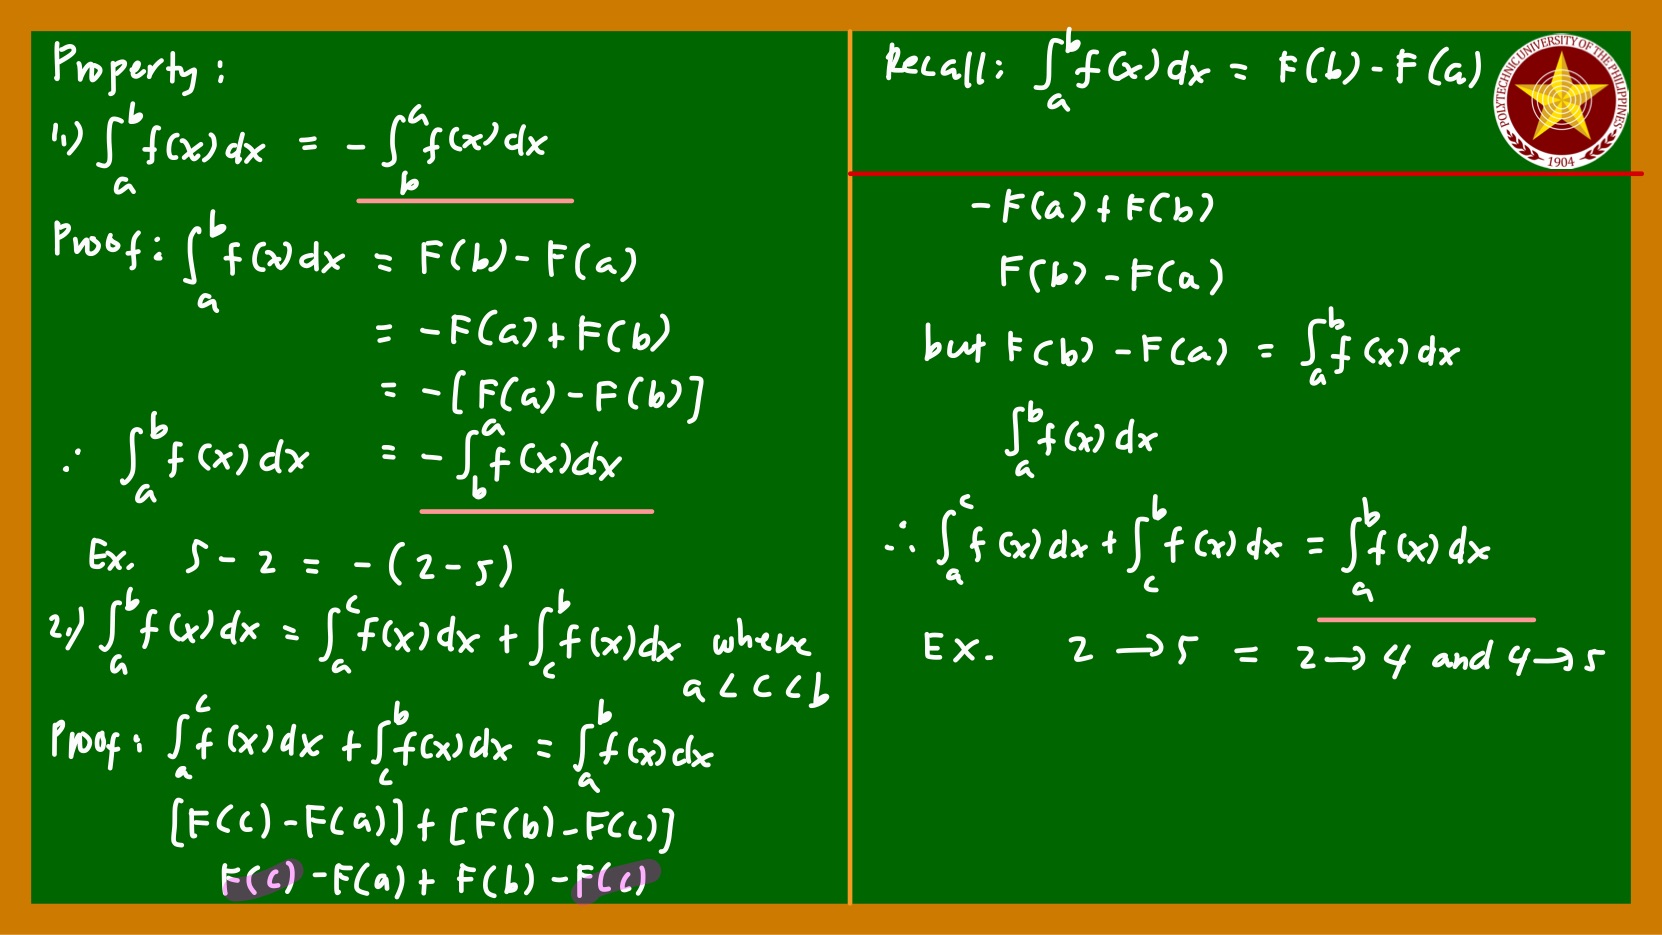 Property:
1.) ∫ₐᵇ f(x) dx = - ∫_bᵃ f(x) dx
Proof: ∫ₐᵇ f(x) dx = F(b) - F(a)
= -F(a) + F(b)
= -[F(a) - F(b)]
∴ ∫ₐᵇ f(x) dx = - ∫_bᵃ f(x) dx
Ex. 5 - 2 = -(2 - 5)
2.) ∫ₐᵇ f(x) dx = ∫ₐᶜ f(x) dx + ∫_cᵇ f(x) dx where
a < c < b
Proof: ∫ₐᶜ f(x) dx + ∫_cᵇ f(x) dx = ∫ₐᵇ f(x) dx
[F(c) - F(a)] + [F(b) - F(c)]
F(c) - F(a) + F(b) - F(c)
Recall: ∫ₐᵇ f(x) dx = F(b) - F(a)
POLYTECHNIC UNIVERSITY OF THE PHILIPPINES
1904
-F(a) + F(b)
F(b) - F(a)
but F(b) - F(a) = ∫ₐᵇ f(x) dx
∫ₐᵇ f(x) dx
∴ ∫ₐᶜ f(x) dx + ∫_cᵇ f(x) dx = ∫ₐᵇ f(x) dx
EX. 2 → 5 = 2 → 4 and 4 → 5